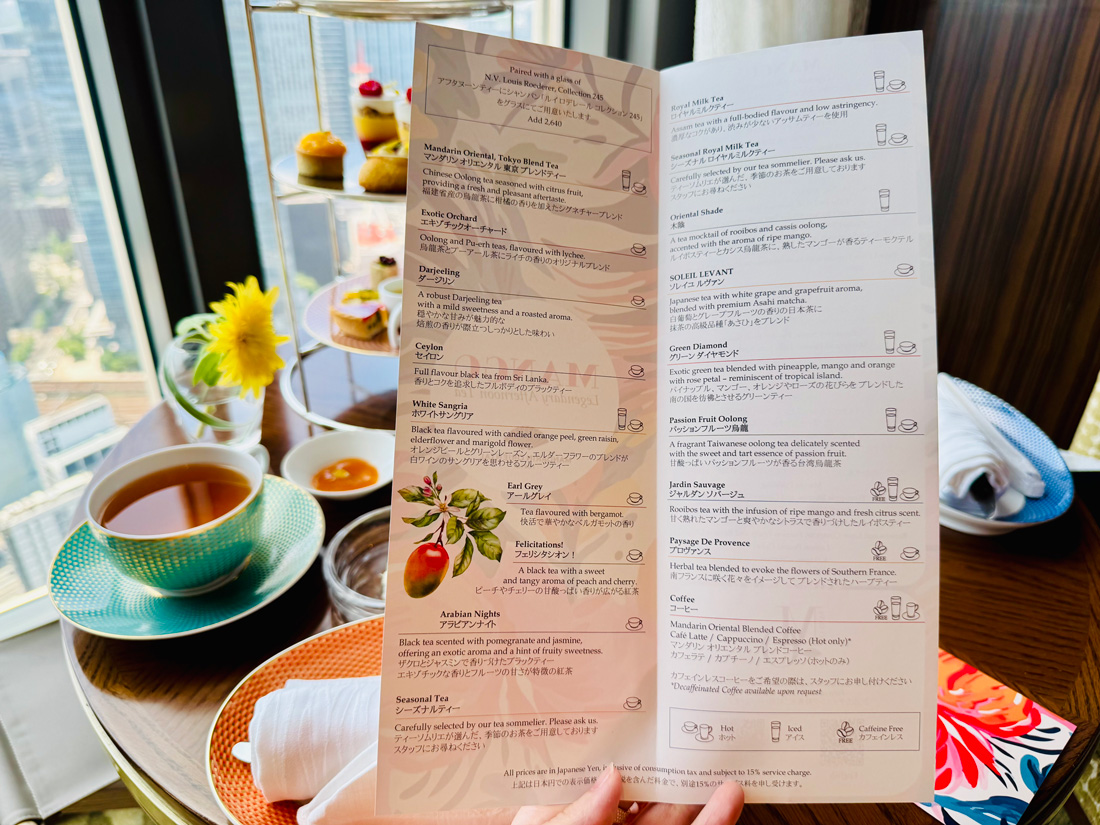 Paired with a glass of
N.V. Louis Roederer, Collection 245
アフタヌーンティーにシャンパン（ルイロデレール コレクション 245）
をグラスにてご用意いたします
Add 2,640
Mandarin Oriental, Tokyo Blend Tea
マンダリン オリエンタル 東京 ブレンドティー
Chinese Oolong tea seasoned with citrus fruit,
providing a fresh and pleasant aftertaste.
福建省産の烏龍茶に柑橘の香りを加えたシグネチャーブレンド
Exotic Orchard
エキゾチックオーチャード
Oolong and Pu-erh teas, flavoured with lychee.
烏龍茶とプーアール茶にライチの香りのオリジナルブレンド
Darjeeling
ダージリン
A robust Darjeeling tea
with a mild sweetness and a roasted aroma.
穏やかな甘みが魅力的な
焙煎の香りが際立つしっかりとした味わい
Ceylon
セイロン
Full flavour black tea from Sri Lanka.
香りとコクを追求したフルボディのブラックティー
White Sangria
ホワイトサングリア
Black tea flavoured with candied orange peel, green raisin,
elderflower and marigold flower.
オレンジピールとグリーンレーズン、エルダーフラワーのブレンドが
白ワインのサングリアを思わせるフルーツティー
Earl Grey
アールグレイ
Tea flavoured with bergamot.
快活で華やかなベルガモットの香り
Felicitations!
フェリシタシオン！
A black tea with a sweet
and tangy aroma of peach and cherry.
ピーチやチェリーの甘酸っぱい香りが広がる紅茶
Arabian Nights
アラビアンナイト
Black tea scented with pomegranate and jasmine,
offering an exotic aroma and a hint of fruity sweetness.
ザクロとジャスミンで香りづけたブラックティー
エキゾチックな香りとフルーツの甘さが特徴の紅茶
Seasonal Tea
シーズナルティー
Carefully selected by our tea sommelier. Please ask us.
ティーソムリエが選んだ、季節のお茶をご用意しております
スタッフにお尋ねください
Royal Milk Tea
ロイヤルミルクティー
Assam tea with a full-bodied flavour and low astringency.
濃厚なコクがあり、渋みが少ないアッサムティーを使用
Seasonal Royal Milk Tea
シーズナル ロイヤルミルクティー
Carefully selected by our tea sommelier. Please ask us.
ティーソムリエが選んだ、季節のお茶をご用意しております
スタッフにお尋ねください
Oriental Shade
木陰
A tea mocktail of rooibos and cassis oolong,
accented with the aroma of ripe mango.
ルイボスティーとカシス烏龍茶に、熟したマンゴーが香るティーモクテル
SOLEIL LEVANT
ソレイユ ルヴァン
Japanese tea with white grape and grapefruit aroma,
blended with premium Asahi matcha.
白葡萄とグレープフルーツの香りの日本茶に
抹茶の高級品種「あさひ」をブレンド
Green Diamond
グリーン ダイヤモンド
Exotic green tea blended with pineapple, mango and orange
with rose petal – reminiscent of tropical island.
パイナップル、マンゴー、オレンジやローズの花びらを ブレンドした
南の国を彷彿とさせるグリーンティー
Passion Fruit Oolong
パッションフルーツ烏龍
A fragrant Taiwanese oolong tea delicately scented
with the sweet and tart essence of passion fruit.
甘酸っぱいパッションフルーツが香る台湾烏龍茶
Jardin Sauvage
ジャルダン ソバージュ
FREE
Rooibos tea with the infusion of ripe mango and fresh citrus scent.
甘く熟れたマンゴーと爽やかなシトラスで香りづけしたルイボスティー
Paysage De Provence
プロヴァンス
FREE
Herbal tea blended to evoke the flowers of Southern France.
南フランスに咲く花々をイメージして ブレンドされたハーブティー
Coffee
コーヒー
FREE
Mandarin Oriental Blended Coffee
Café Latte / Cappuccino / Espresso (Hot only)*
マンダリン オリエンタル ブレンドコーヒー
カフェラテ / カプチーノ / エスプレッソ（ホットのみ）
カフェインレスコーヒーをご希望の際は、スタッフにお申し付けください
*Decaffeinated Coffee available upon request
Hot
ホット
Iced
アイス
FREE
Caffeine Free
カフェインレス
All prices are in Japanese Yen, inclusive of consumption tax and subject to 15% service charge.
上記は日本円での表示価格 を含んだ料金で、別途15%の 料を申し受けます。